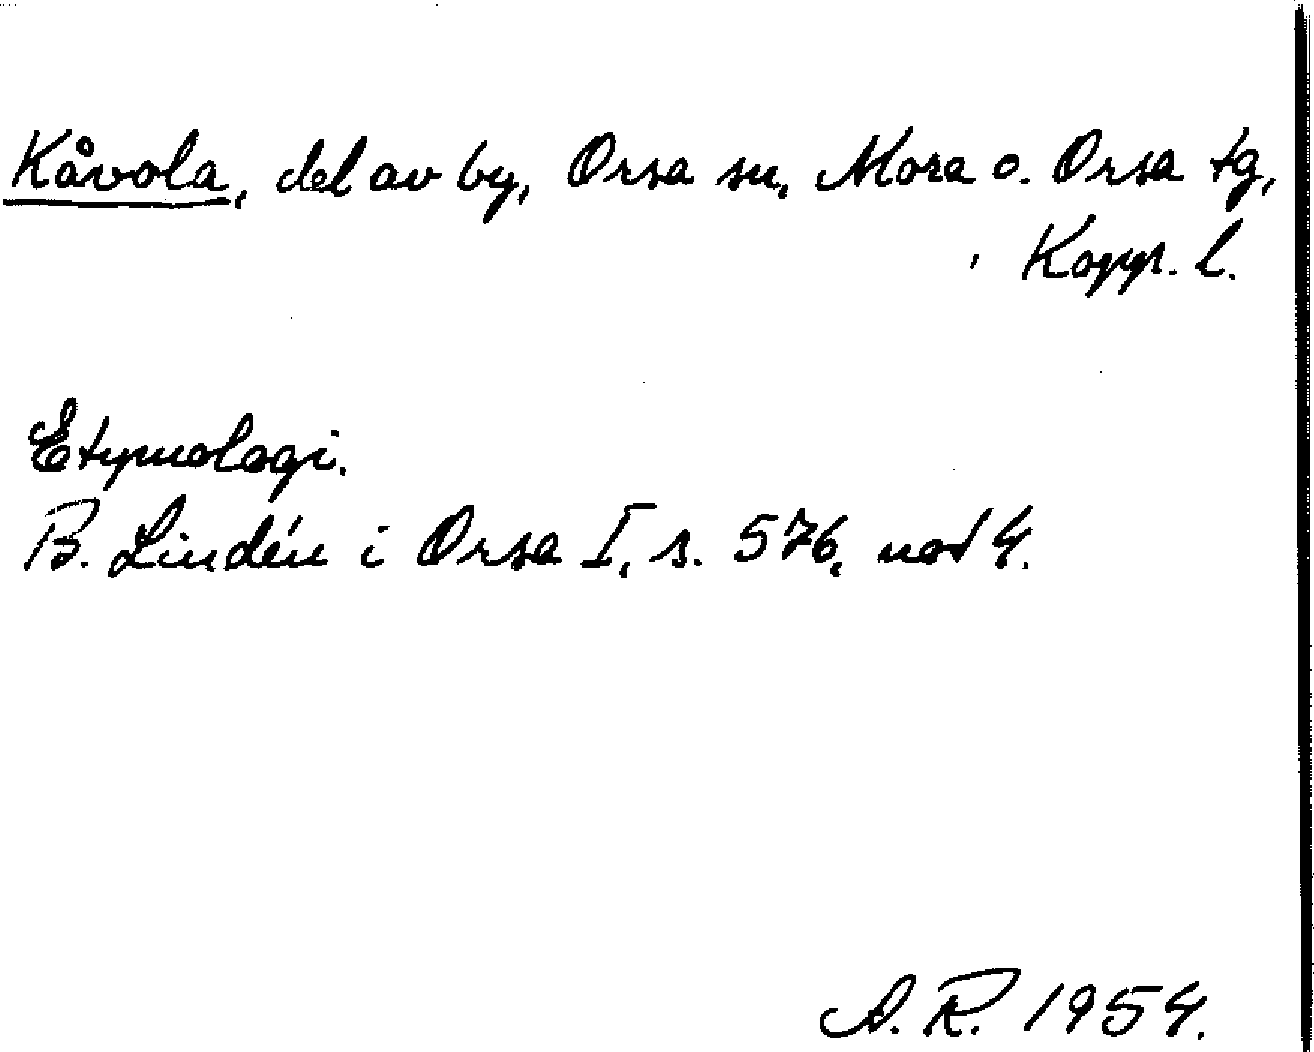 Kåvola, del av by, Orsa sn, Mora o. Orsa tg,
Kopp. l.
Etymologi.
B. Lindén i Orsa I, s. 576, not 4.
A. R. 1954.